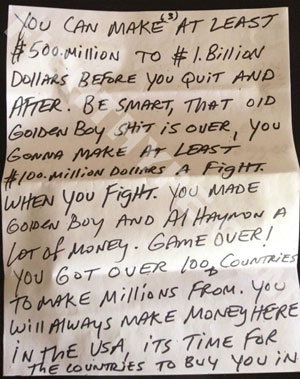 YOU CAN MAKE ($) AT LEAST
$500.MILLION TO $1.BILLION
DOLLARS BEFORE YOU QUIT AND
AFTER. BE SMART, THAT OLD
GOLDEN BOY SHIT IS OVER, YOU
GONNA MAKE AT LEAST
$100.MILLION DOLLARS A FIGHT.
WHEN YOU FIGHT. YOU MADE
GOLDEN BOY AND Al HAYMON A
LOT OF MONEY. GAME OVER!
YOU GOT OVER 100 COUNTRIES
TO MAKE MILLIONS FROM. YOU
Will ALWAYS MAKE MONEY HERE
IN the USA, its TIME FOR
THE COUNTRIES TO BUY YOU IN